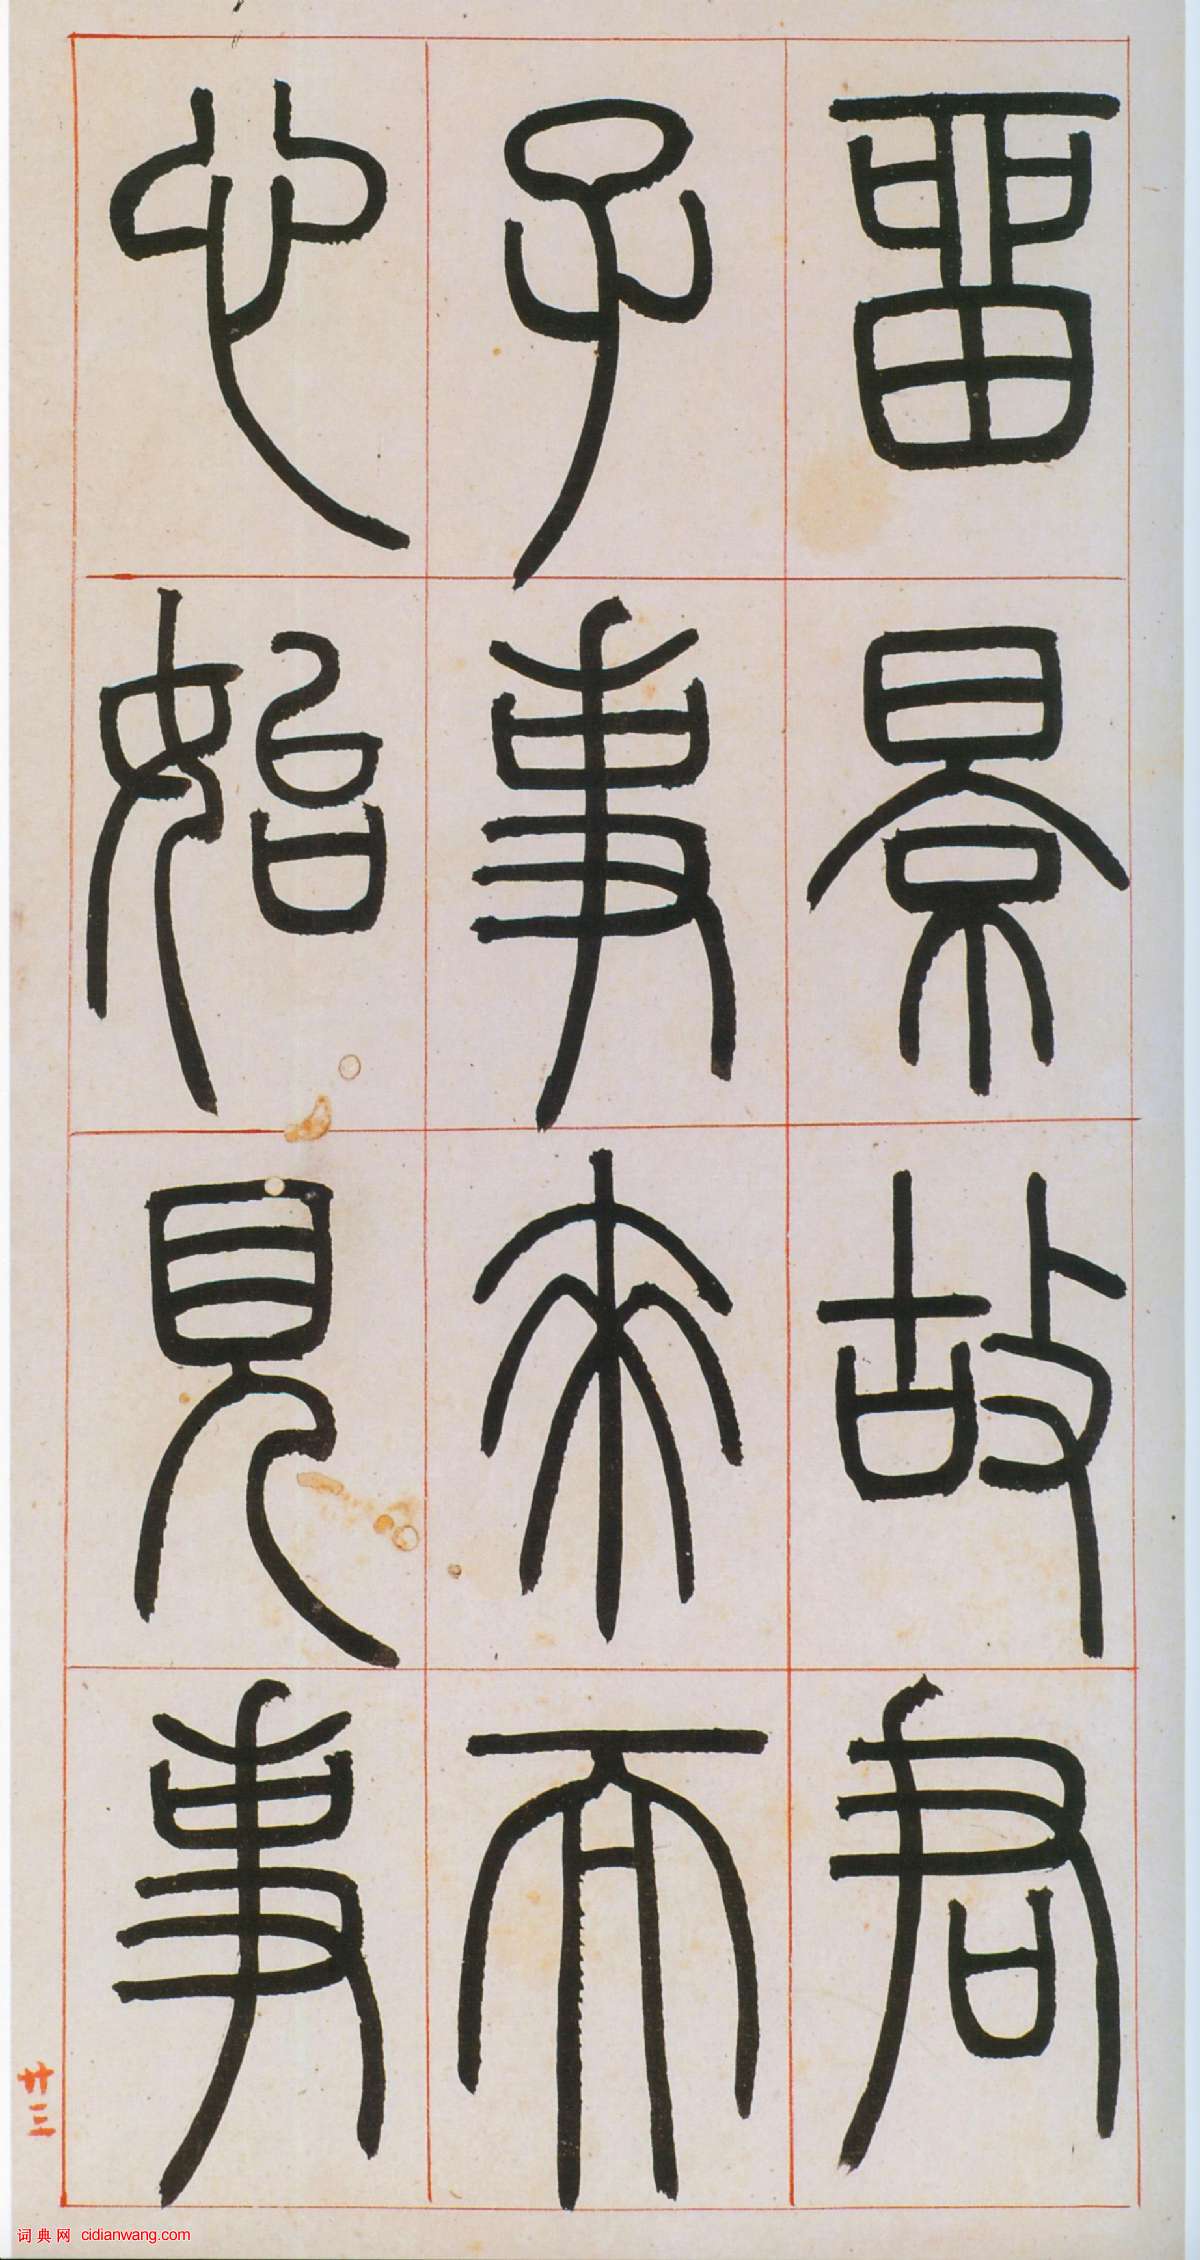 畱景故君
子事來而
心始見事
廿三
词典网 cidianwang.com